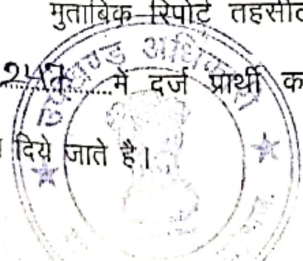 मुताबिक रिपोर्ट तहसील
247 में दर्ज प्रार्थी क
दिये जाते है।